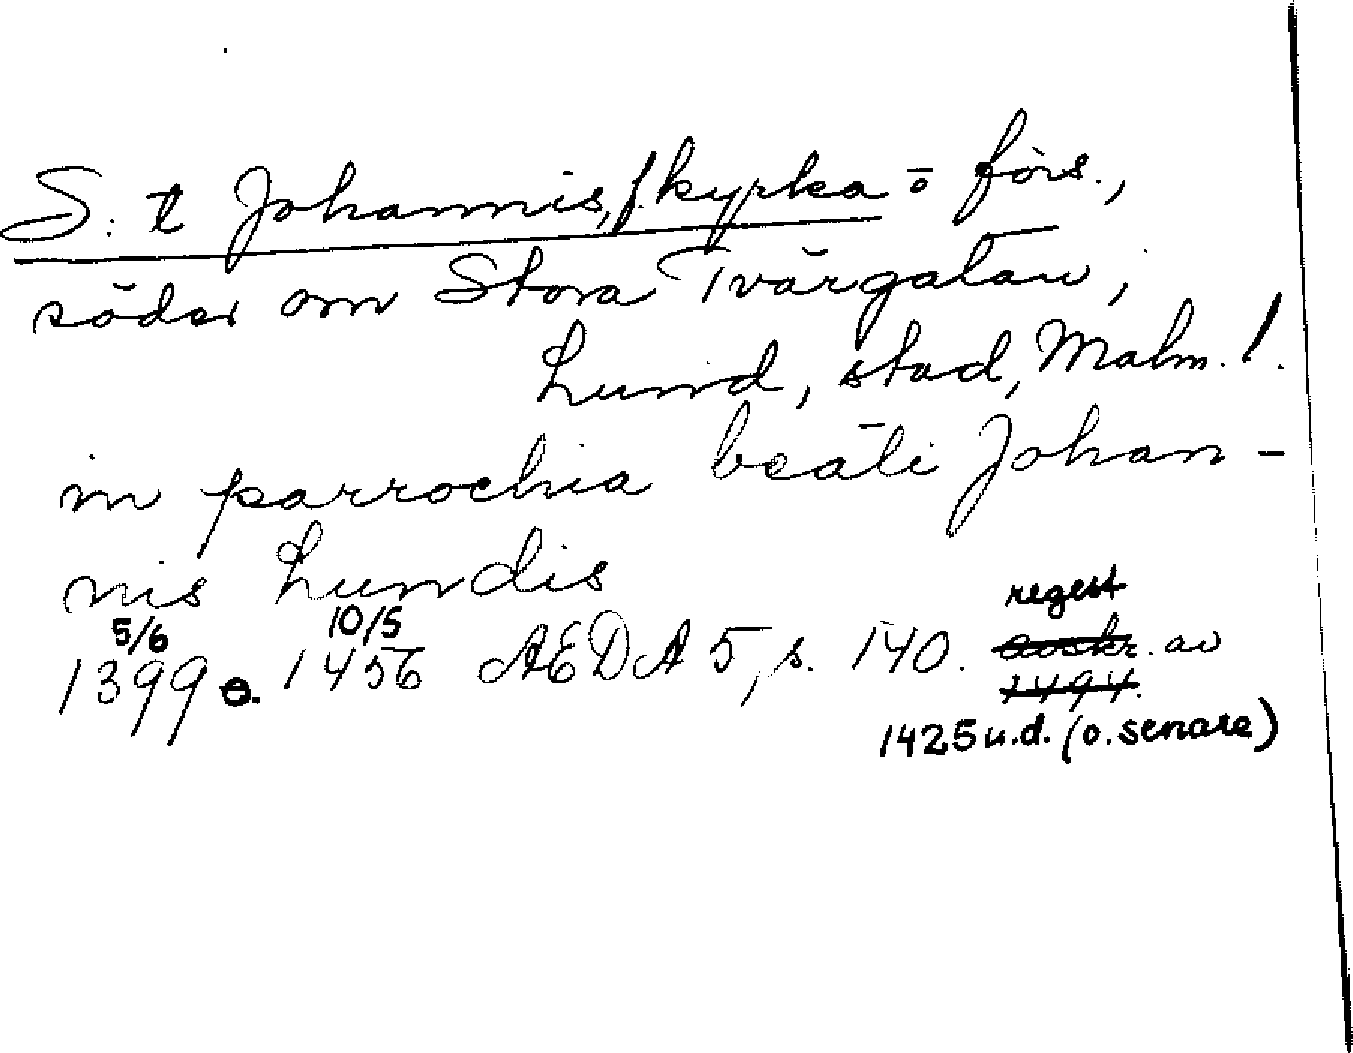 S:t Johannis, f. kyrka o förs.,
söder om Stora Tvärgatan,
Lund, stad, Malm. l.
in parrochia beati Johan-
nis Lundis
5/6 10/5 regest
1399 o. 1456 AEDA 5, s. 140. avskr. av
1494.
1425 u.d. (o. senare)